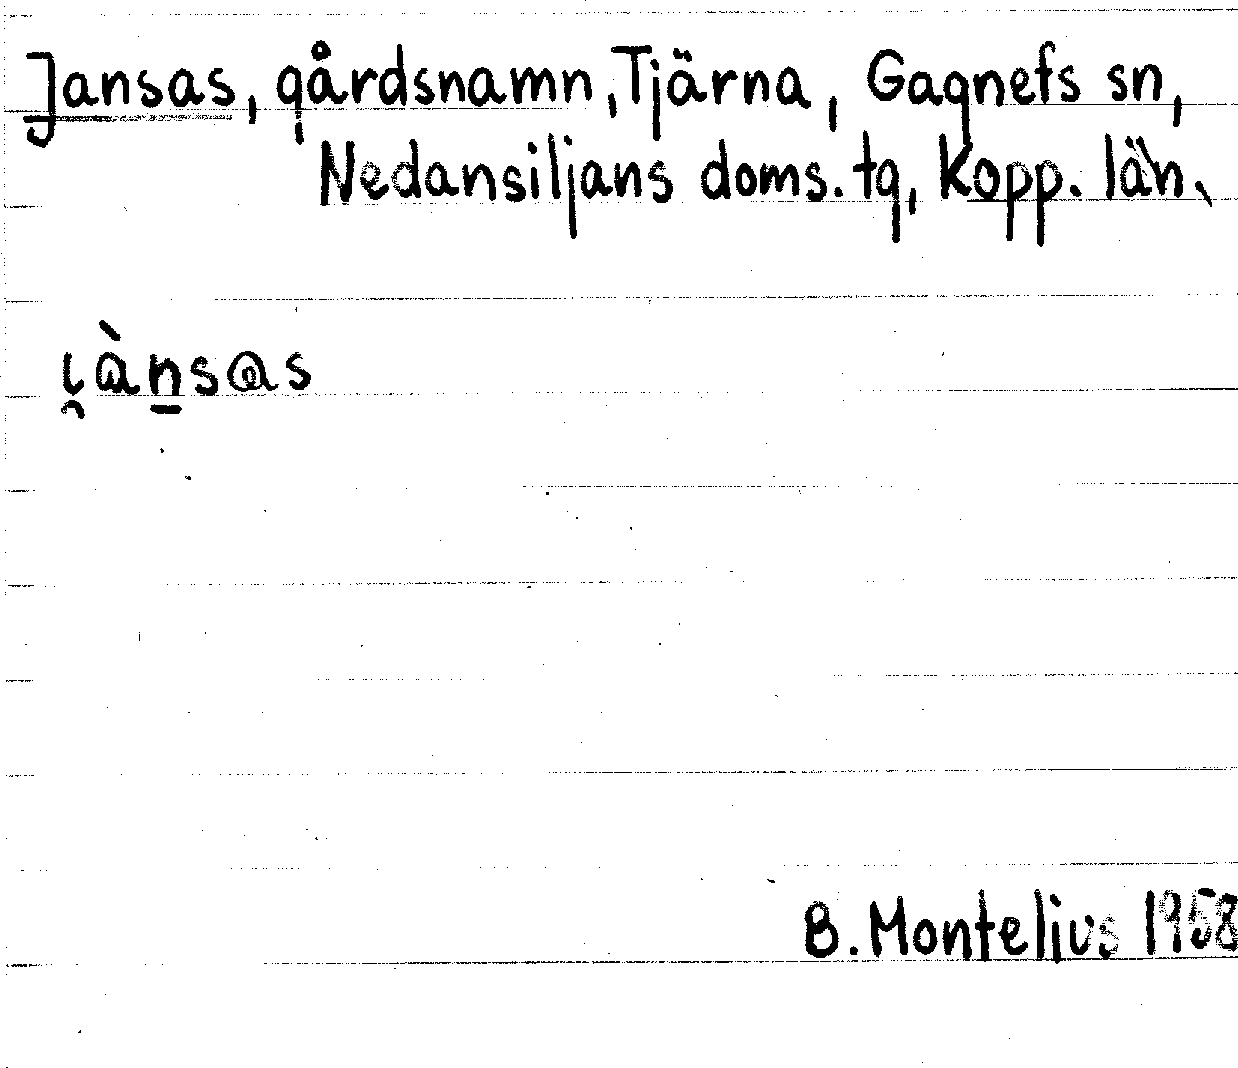 Jansas, gårdsnamn, Tjärna, Gagnefs sn,
Nedansiljans doms. tg, Kopp. län.
i̯àn̠sas
B. Montelius 1958